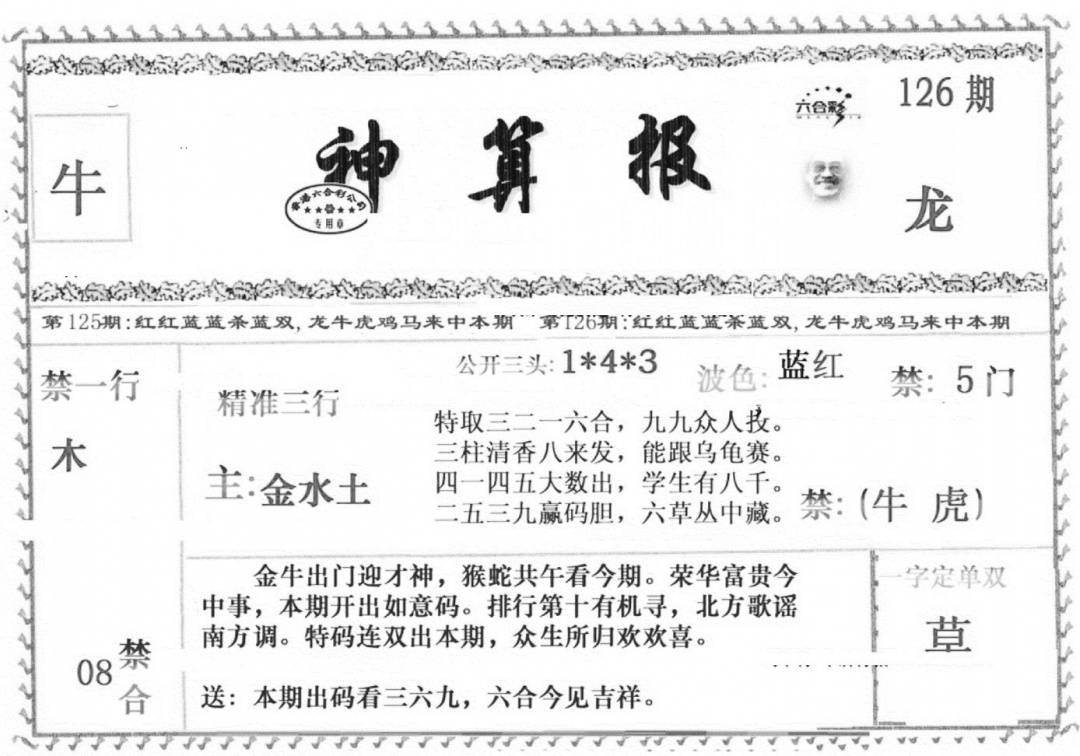 牛
神算报
香港六合彩公司
专用章
六合彩
126期
龙
第125期:红红蓝蓝杀蓝双,龙牛虎鸡马来中本期
第126期:红红蓝蓝杀蓝双,龙牛虎鸡马来中本期
禁一行
木
精准三行
主:金水土
公开三头:1*4*3
波色:蓝红
禁:5门
特取三二一六合，九九众人投。
三柱清香八来发，能跟乌龟赛。
四一四五大数出，学生有八千。
二五三九赢码胆，六草丛中藏。
禁:(牛 虎)
08
禁合
金牛出门迎才神，猴蛇共午看今期。荣华富贵今
中事，本期开出如意码。排行第十有机寻，北方歌谣
南方调。特码连双出本期，众生所归欢欢喜。
送：本期出码看三六九，六合今见吉祥。
一字定单双
草